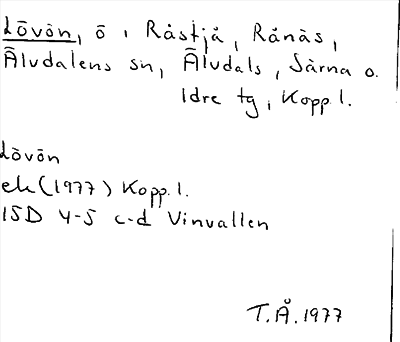 Lövön, ö i Råstjå, Rånäs,
Älvdalens sn, Älvdals, Särna o.
Idre tg, Kopp. l.
Lövön
ek (1977) Kopp. l.
15D 4-5 c-d Vinvallen
T.Å. 1977